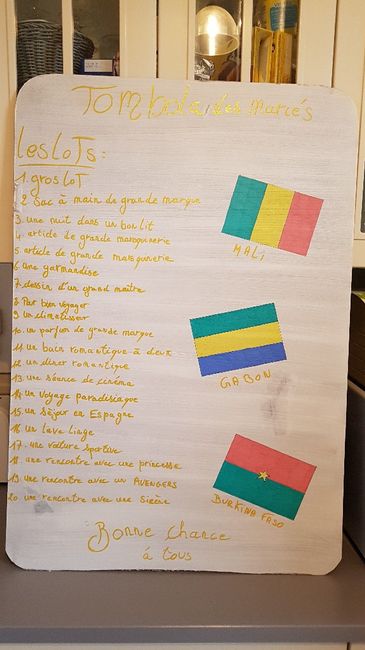 Tombola des Mariés
les loTs :
1. gros loT
2 Sac à main de grande marque
3. une nuit dans un bon lit
4. article de grande maroquinerie
5. article de grande maroquinerie
6 une gourmandise
7. dessin d'un grand maître
8 Par bien voyager
9 Un climatisseur
10. un parfum de grande marque
11. un bain romantique à deux
12. un diner romantique
13. une séance de cinéma
14. un voyage paradisiaque
15. un séjour en Espagne
16. un lave linge
17. une voiture sportive
18. une rencontre avec une princesse
19. une rencontre avec un AVENGERS
20. une rencontre avec une Sirène
MALi
GABON
BURKINA FASO
Bonne chance
à tous